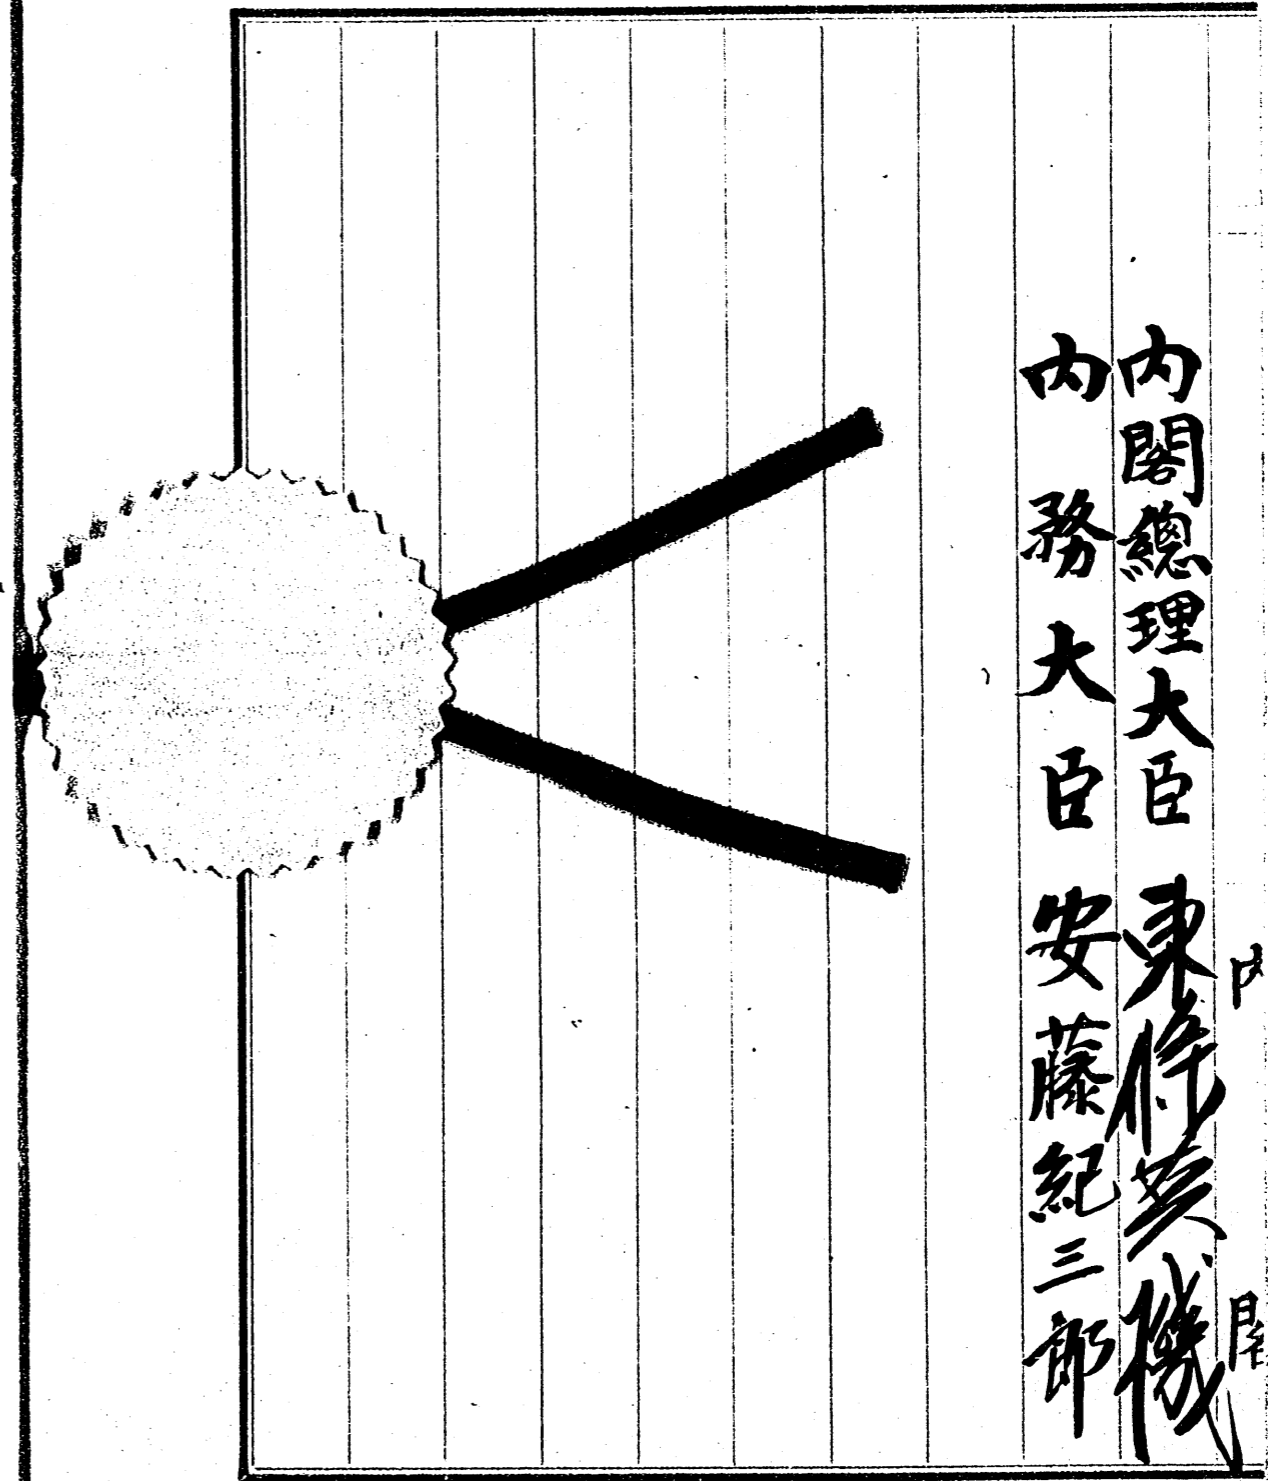 内閣
内閣總理大臣 東條英機
内務大臣 安藤紀三郎